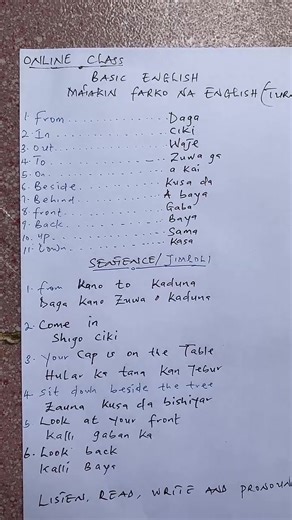 ONLINE CLASS
BASIC ENGLISH
MATAKIN FARKO NA ENGLISH (TUR
1. From ............ Daga
2. In ............ Ciki
3. Out ............ Waje
4. To ............ Zuwa ga
5. On ............ a kai
6. Beside ............ Kusa da
7. Behind ............ A baya
8. front ............ Gaba
9. Back ............ Baya
10. up ............ Sama
11. Down ............ Kasa
SENTENCE/JIMLOLI
1. From Kano to Kaduna
Daga Kano Zuwa Kaduna
2. Come in
Shigo Ciki
3. Your Cap is on the Table
Hular ka tana kan Tebur
4. Sit down beside the tree
Zauna Kusa da bishiyar
5 Look at your front
Kalli gaban ka
6. Look back
Kalli Baya
LISTEN, READ, WRITE AND PRONOUN